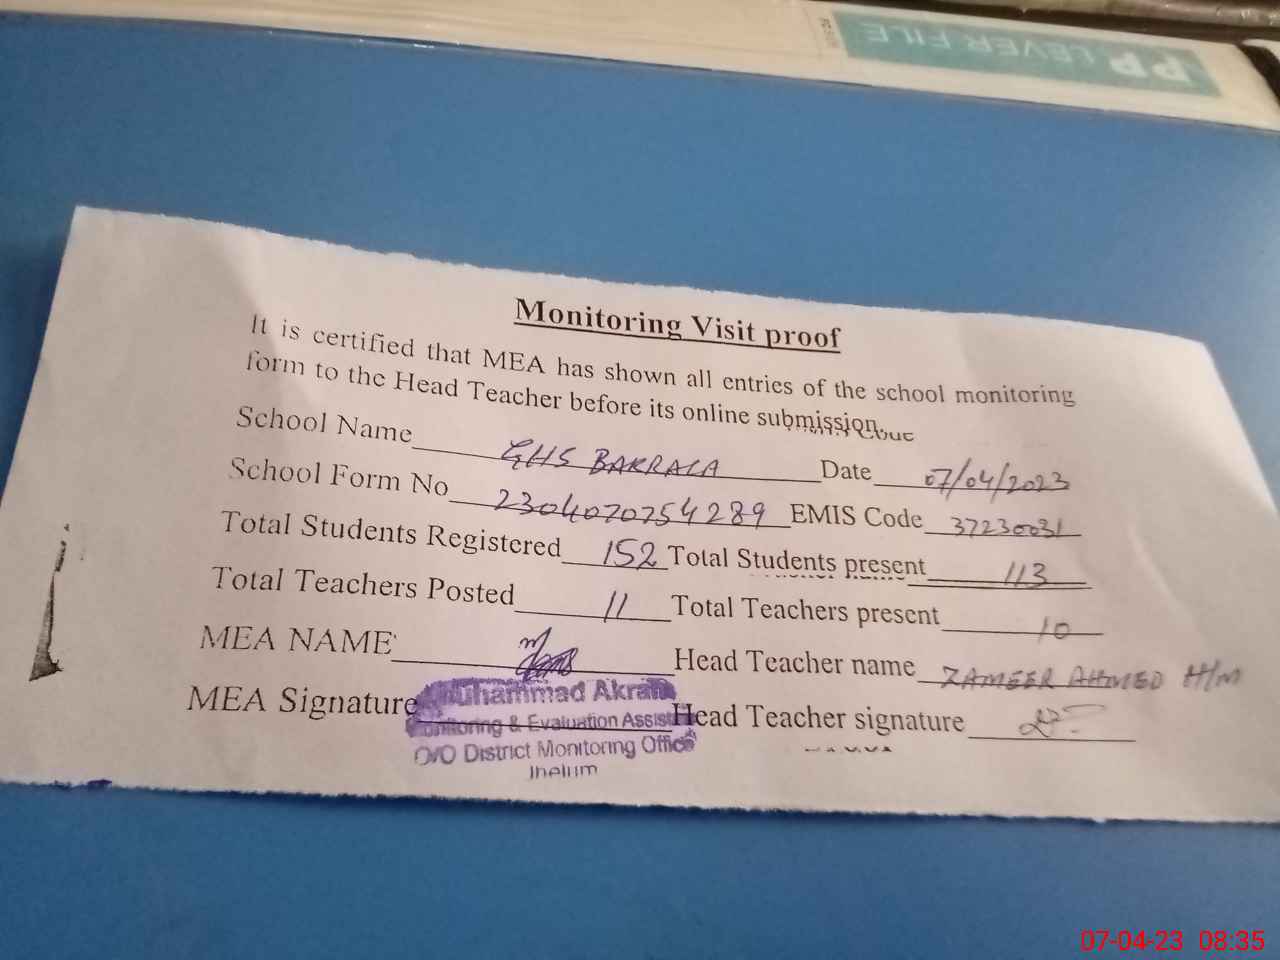 PP LEVER FILE
Monitoring Visit proof
It is certified that MEA has shown all entries of the school monitoring
form to the Head Teacher before its online submission.
School Name GHS BAKRALA Date 07/04/2023
School Form No 2304070754289 EMIS Code 37230031
Total Students Registered 152 Total Students present 113
Total Teachers Posted 11 Total Teachers present 10
MEA NAME Head Teacher name ZAMEER AHMED H/M
MEA Signature Head Teacher signature
Muhammad Akram
Monitoring & Evaluation Assist
O/O District Monitoring Office
Jhelum
07-04-23 08:35